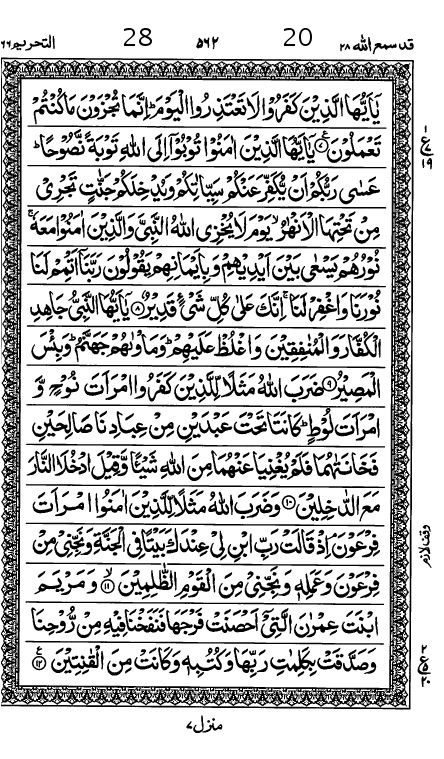 قد سمع الله ٢٨ 20 ٥٦٢ 28 التحريم ٦٦
يٰۤاَيُّهَا الَّذِيْنَ كَفَرُوْا لَا تَعْتَذِرُوا الْيَوْمَ ؕ اِنَّمَا تُجْزَوْنَ مَا كُنْتُمْ
تَعْمَلُوْنَ ۷ يٰۤاَيُّهَا الَّذِيْنَ اٰمَنُوْا تُوْبُوْۤا اِلَى اللّٰهِ تَوْبَةً نَّصُوْحًا ؕ
عَسٰى رَبُّكُمْ اَنْ يُّكَفِّرَ عَنْكُمْ سَيِّاٰتِكُمْ وَيُدْخِلَكُمْ جَنّٰتٍ تَجْرِيْ
مِنْ تَحْتِهَا الْاَنْهٰرُ ۙ يَوْمَ لَا يُخْزِى اللّٰهُ النَّبِيَّ وَالَّذِيْنَ اٰمَنُوْا مَعَهٗ ۚ
نُوْرُهُمْ يَسْعٰى بَيْنَ اَيْدِيْهِمْ وَبِاَيْمَانِهِمْ يَقُوْلُوْنَ رَبَّنَاۤ اَتْمِمْ لَنَا
نُوْرَنَا وَاغْفِرْ لَنَا ۚ اِنَّكَ عَلٰى كُلِّ شَيْءٍ قَدِيْرٌ ۸ يٰۤاَيُّهَا النَّبِيُّ جَاهِدِ
الْكُفَّارَ وَالْمُنٰفِقِيْنَ وَاغْلُظْ عَلَيْهِمْ ؕ وَمَاْوٰىهُمْ جَهَنَّمُ ؕ وَبِئْسَ
الْمَصِيْرُ ۹ ضَرَبَ اللّٰهُ مَثَلًا لِّلَّذِيْنَ كَفَرُوا امْرَاَتَ نُوْحٍ وَّ
امْرَاَتَ لُوْطٍ ؕ كَانَتَا تَحْتَ عَبْدَيْنِ مِنْ عِبَادِنَا صَالِحَيْنِ
فَخَانَتٰهُمَا فَلَمْ يُغْنِيَا عَنْهُمَا مِنَ اللّٰهِ شَيْئًا وَّقِيْلَ ادْخُلَا النَّارَ
مَعَ الدّٰخِلِيْنَ ۱۰ وَضَرَبَ اللّٰهُ مَثَلًا لِّلَّذِيْنَ اٰمَنُوا امْرَاَتَ
فِرْعَوْنَ ۘ اِذْ قَالَتْ رَبِّ ابْنِ لِيْ عِنْدَكَ بَيْتًا فِى الْجَنَّةِ وَنَجِّنِيْ مِنْ
فِرْعَوْنَ وَعَمَلِهٖ وَنَجِّنِيْ مِنَ الْقَوْمِ الظّٰلِمِيْنَ ۱۱ ۙ وَمَرْيَمَ
ابْنَتَ عِمْرٰنَ الَّتِيْۤ اَحْصَنَتْ فَرْجَهَا فَنَفَخْنَا فِيْهِ مِنْ رُّوْحِنَا
وَصَدَّقَتْ بِكَلِمٰتِ رَبِّهَا وَكُتُبِهٖ وَكَانَتْ مِنَ الْقٰنِتِيْنَ ۱۲
ع ١ ١٩
وقف لازم
ع ٢ ٢٠
منزل ٧